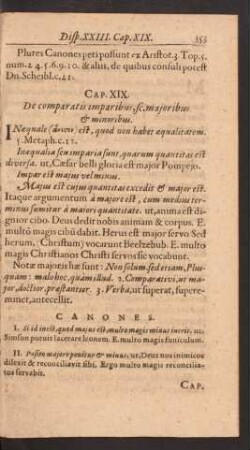 Disp. XXIII. Cap. XIX. 353
Plures Canones peti possunt ex Aristot. 3. Top. 5.
num. 2 4. 5. 6. 9. 10. & aliis, de quibus consuli potest
Dn. Scheibl. c. 41.
CAP. XIX.
De comparatis imparibus, sc. majoribus
& minoribus.
INæquale est, quod non habet æqualitatem.
5. Metaph. c. 15.
Inæqualia seu imparia sunt, quarum quantitas est
diversa. ut, Cæsar belli gloria est major Pompejo.
Impar est majus vel minus.
Majus est cujus quantitas excedit & major est.
Itaque argumentum à majore est, cum medius ter-
minus sumitur à majore quantitate. ut, anima est di-
gnior cibo. Deus dedit nobis animam & corpus. E.
multo magis cibū dabit. Herus est major servo Sed
herum, (Christum) vocarunt Beelzebub. E. multo
magis Christianos Christi servos sic vocabunt.
Notæ majoris hæ sunt: Non solum, sed etiam, Plus-
quam: malo hoc, quàm illud. 2. Comparativi, ut ma-
jor, doctior, præstantior. 3. Verba, ut superat, supere-
minet, antecellit.
CANONES.
I. Si id inest, quod majus est, multo magis minus inerit. ut,
Simson potuit lacerare leonem. E. multo magis funiculum.
II. Posito majore ponitur & minus, ut, Deus nos inimicos
dilexit & reconciliavit sibi. Ergo multo magis reconcilia-
tos servabit.
CAP.